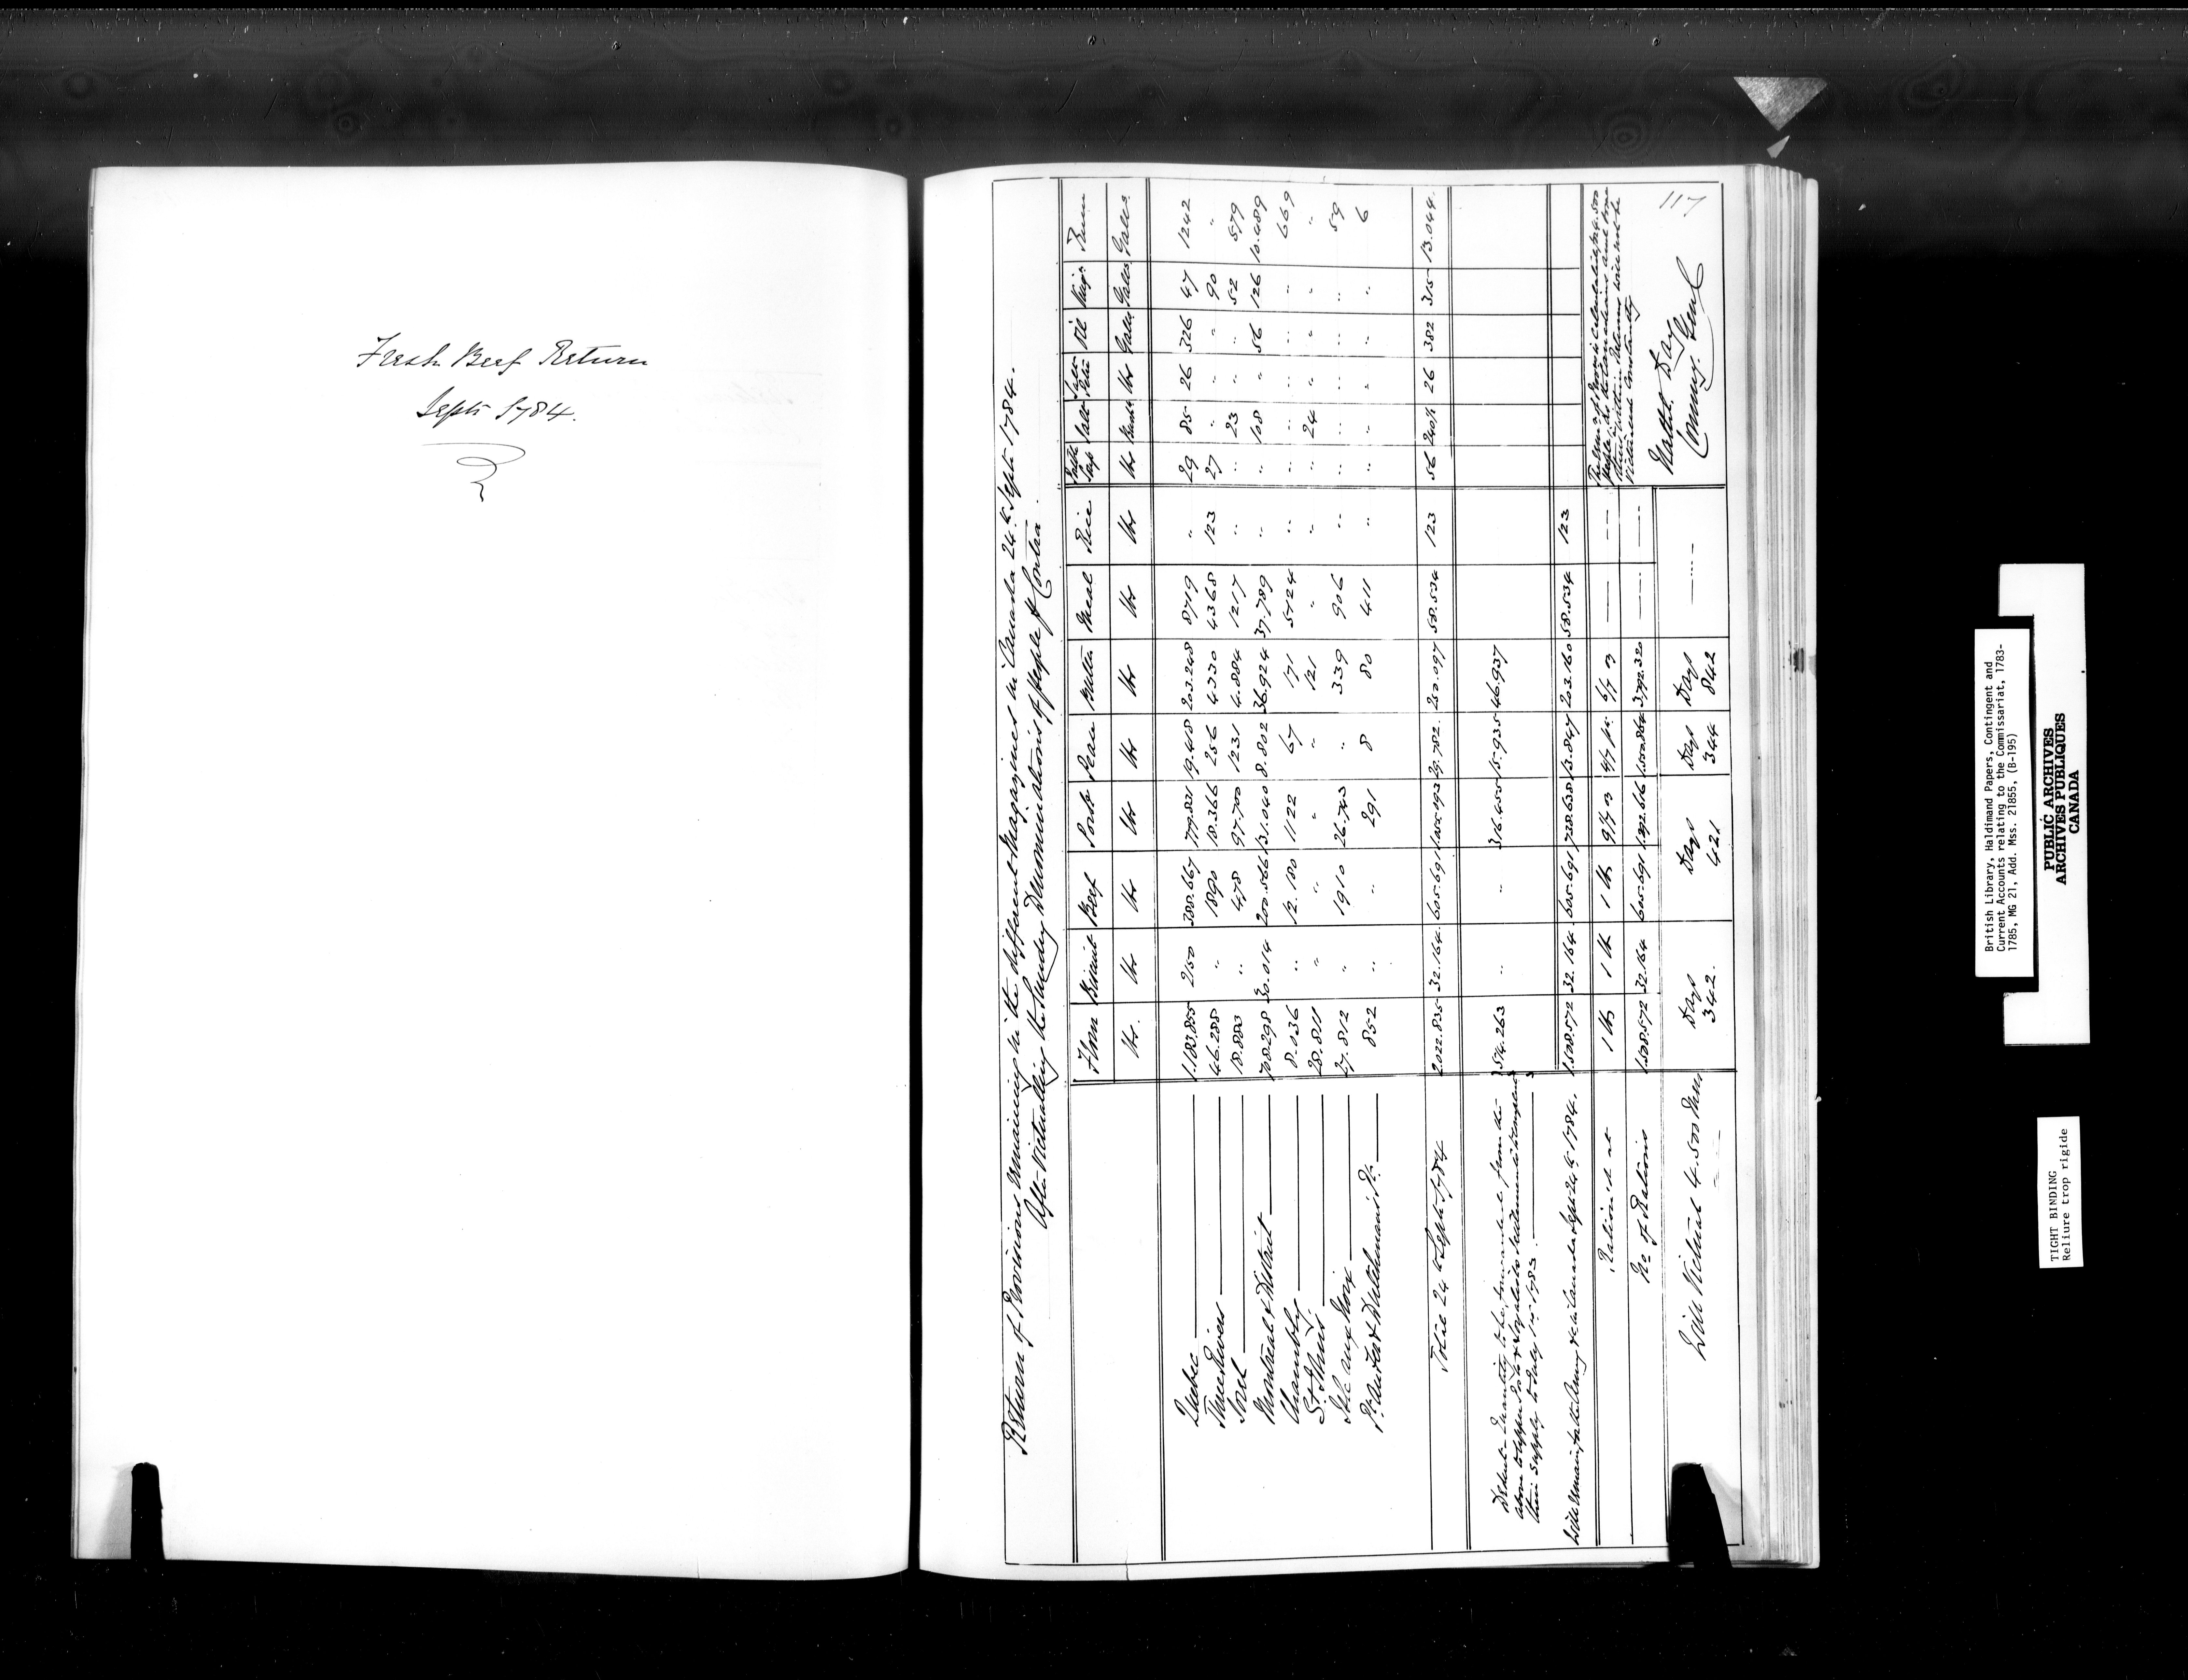 Fresh Beef Return
Septr 1784.
Return of Provisions remaining in the different Magazines in Canada 24th Septr 1784.
After Victualling the Sundry Denominations of People pr Contra
Flour Biscuit Beef Pork Pease Butter Meal Rice Salt Oil Vinr Rum
lbs. lbs lbs lbs lbs lbs lbs lbs lbs lbs Galls Galls Galls
Quebec 1.183.855 2150 388.667 779.821 19.418 203.248 8719 " 29 85 26 326 47 1242
Three Rivers 46.288 " 1890 18.366 256 4330 4368 123 27 " " " 90 "
Sorel 18.883 " 478 97.700 1231 4.884 1217 " " 23 " " 52 579
Montreal & District 708.298 30.014 200.566 131.040 8.802 36.924 37.789 " " 108 " 56 126 10.489
Chambly 8.036 " 12.180 1122 67 171 5124 " " " " " " 669
St Johns 28.811 " " " " 121 " " " 24 " " " "
Isle aux Noix 27.812 " 1910 26.743 " 339 906 " " " " " " 59
Pt. au Fer & Dutchmans Pt. 852 " " 291 8 80 411 " " " " " " 6
Total 24th Septr 1784 2.022.835 32.164 605.691 1.055.093 29.782 250.097 58.534 123 56 240 26 382 315 13.044
Deduct Quantity to be forwarded from the
above to Upper Posts & Loyalists Settlements to compleat
their supply to July 1st 1783 514.263 " " 316.455 15.935 46.937
Will remain for the Army &c in Canada Septr 24th 1784. 1.508.572 32.164 605.691 738.638 13.847 203.160 58.534 123
Rations at 1 lb 1 lb 1 lb 9 1/7 oz 6/7 oz
No of Rations 1.508.572 32.164 605.691 1.292.616
Will Victual 4.500 Men Days 342. Days 421 Days 344 Days 842
Victualled Constantly
Nathl. Day
Commy. Genl
117
British Library, Haldimand Papers, Contingent and
Current Accounts relating to the Commissariat, 1783-
1785, MG 21, Add. Mss. 21855, (B-195)
PUBLIC ARCHIVES
ARCHIVES PUBLIQUES
CANADA
TIGHT BINDING
Reliure trop rigide